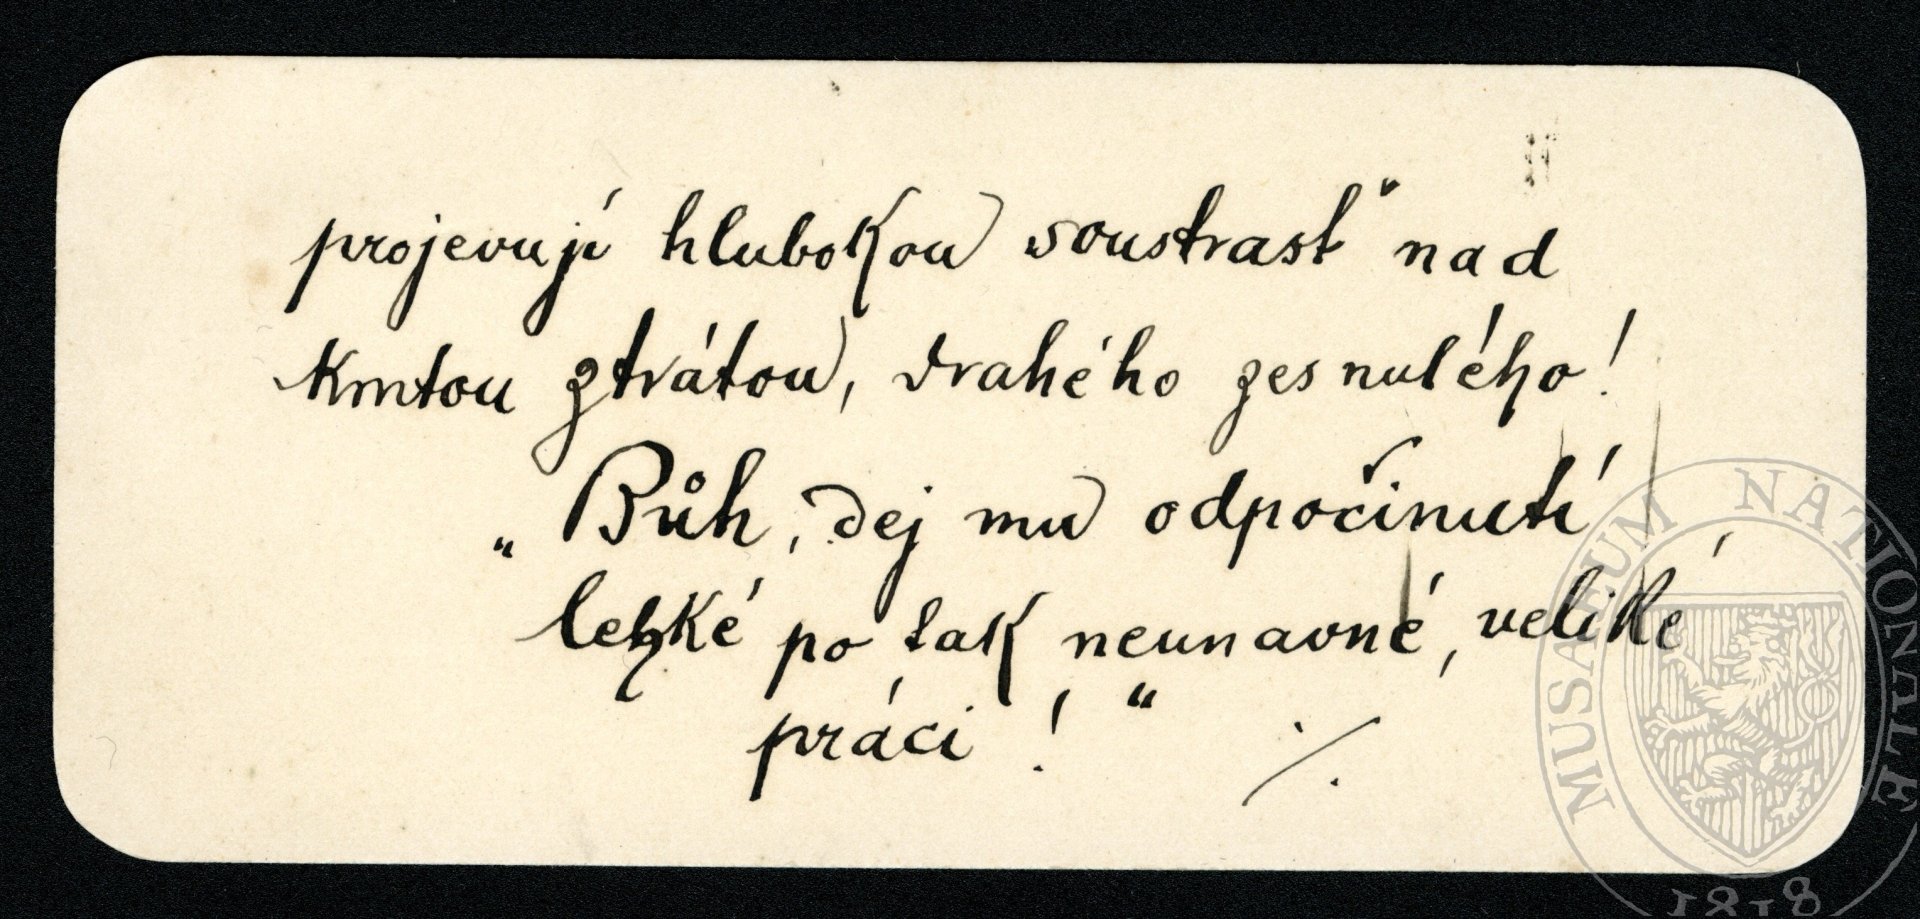 projevují hlubokou soustrast" nad
kmtou ztrátou, drahého zesnulého!
„Bůh, dej mu odpočinutí
lehké po tak neunavné, veliké
práci!“ ./.
MUSAEUM NATIONALE
1818